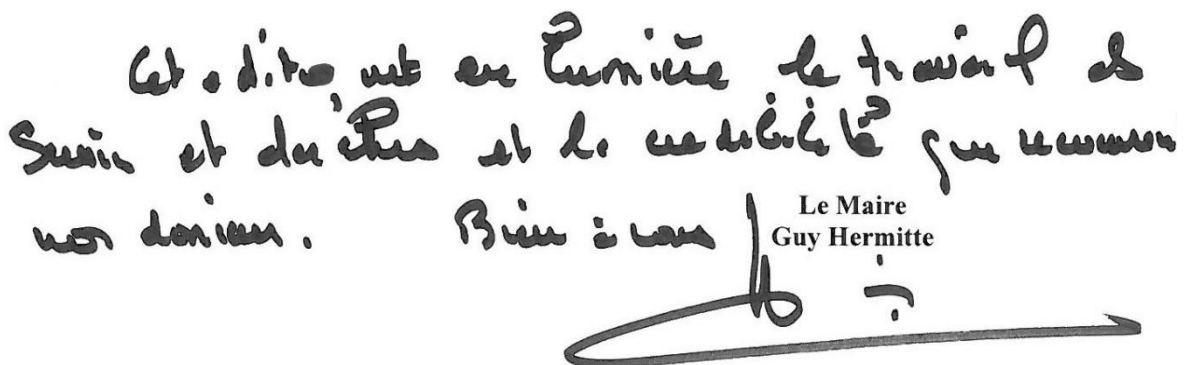 Cet édito met en lumière le travail de
Suivi et des élus et la crédibilité que
nos dossiers. Bien à vous
Le Maire
Guy Hermitte